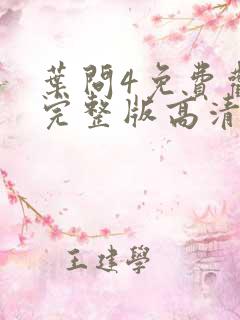 葉問4免費觀
完整版高清
王建學